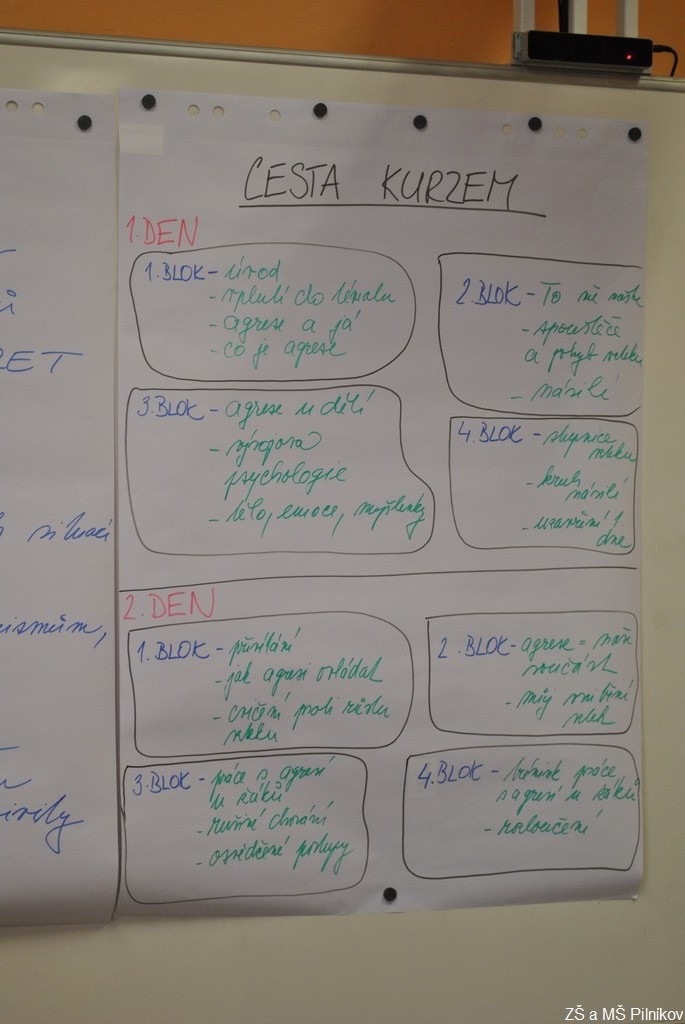 CESTA KURZEM
1. DEN
1. BLOK - úvod
- vplutí do tématu
- agrese a já
- co je agrese
2. BLOK - To mě
- spouštěče
a pohyb vzteku
- násilí
3. BLOK - agrese u dětí
- vývojová
psychologie
- tělo, emoce, myšlenky
4. BLOK - stupnice
vzteku
- kruh
násilí
- uzavření 1.
dne
2. DEN
1. BLOK - přivítání
- jak agresi ovládat
- cvičení proti růstu
vzteku
2. BLOK - agrese = naše
součást
- můj vnitřní
vztek
3. BLOK - práce s agresí
u žáků
- rušivé chování
- osvědčené postupy
4. BLOK - trénink práce
s agresí u žáků
- rozloučení
RET
situaci
ZŠ a MŠ Pilníkov